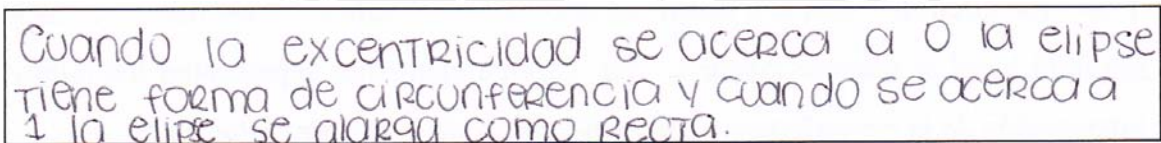 Cuando la excentricidad se acerca a 0 la elipse
tiene forma de circunferencia y cuando se acerca a
1 la elipse se alarga como recta.